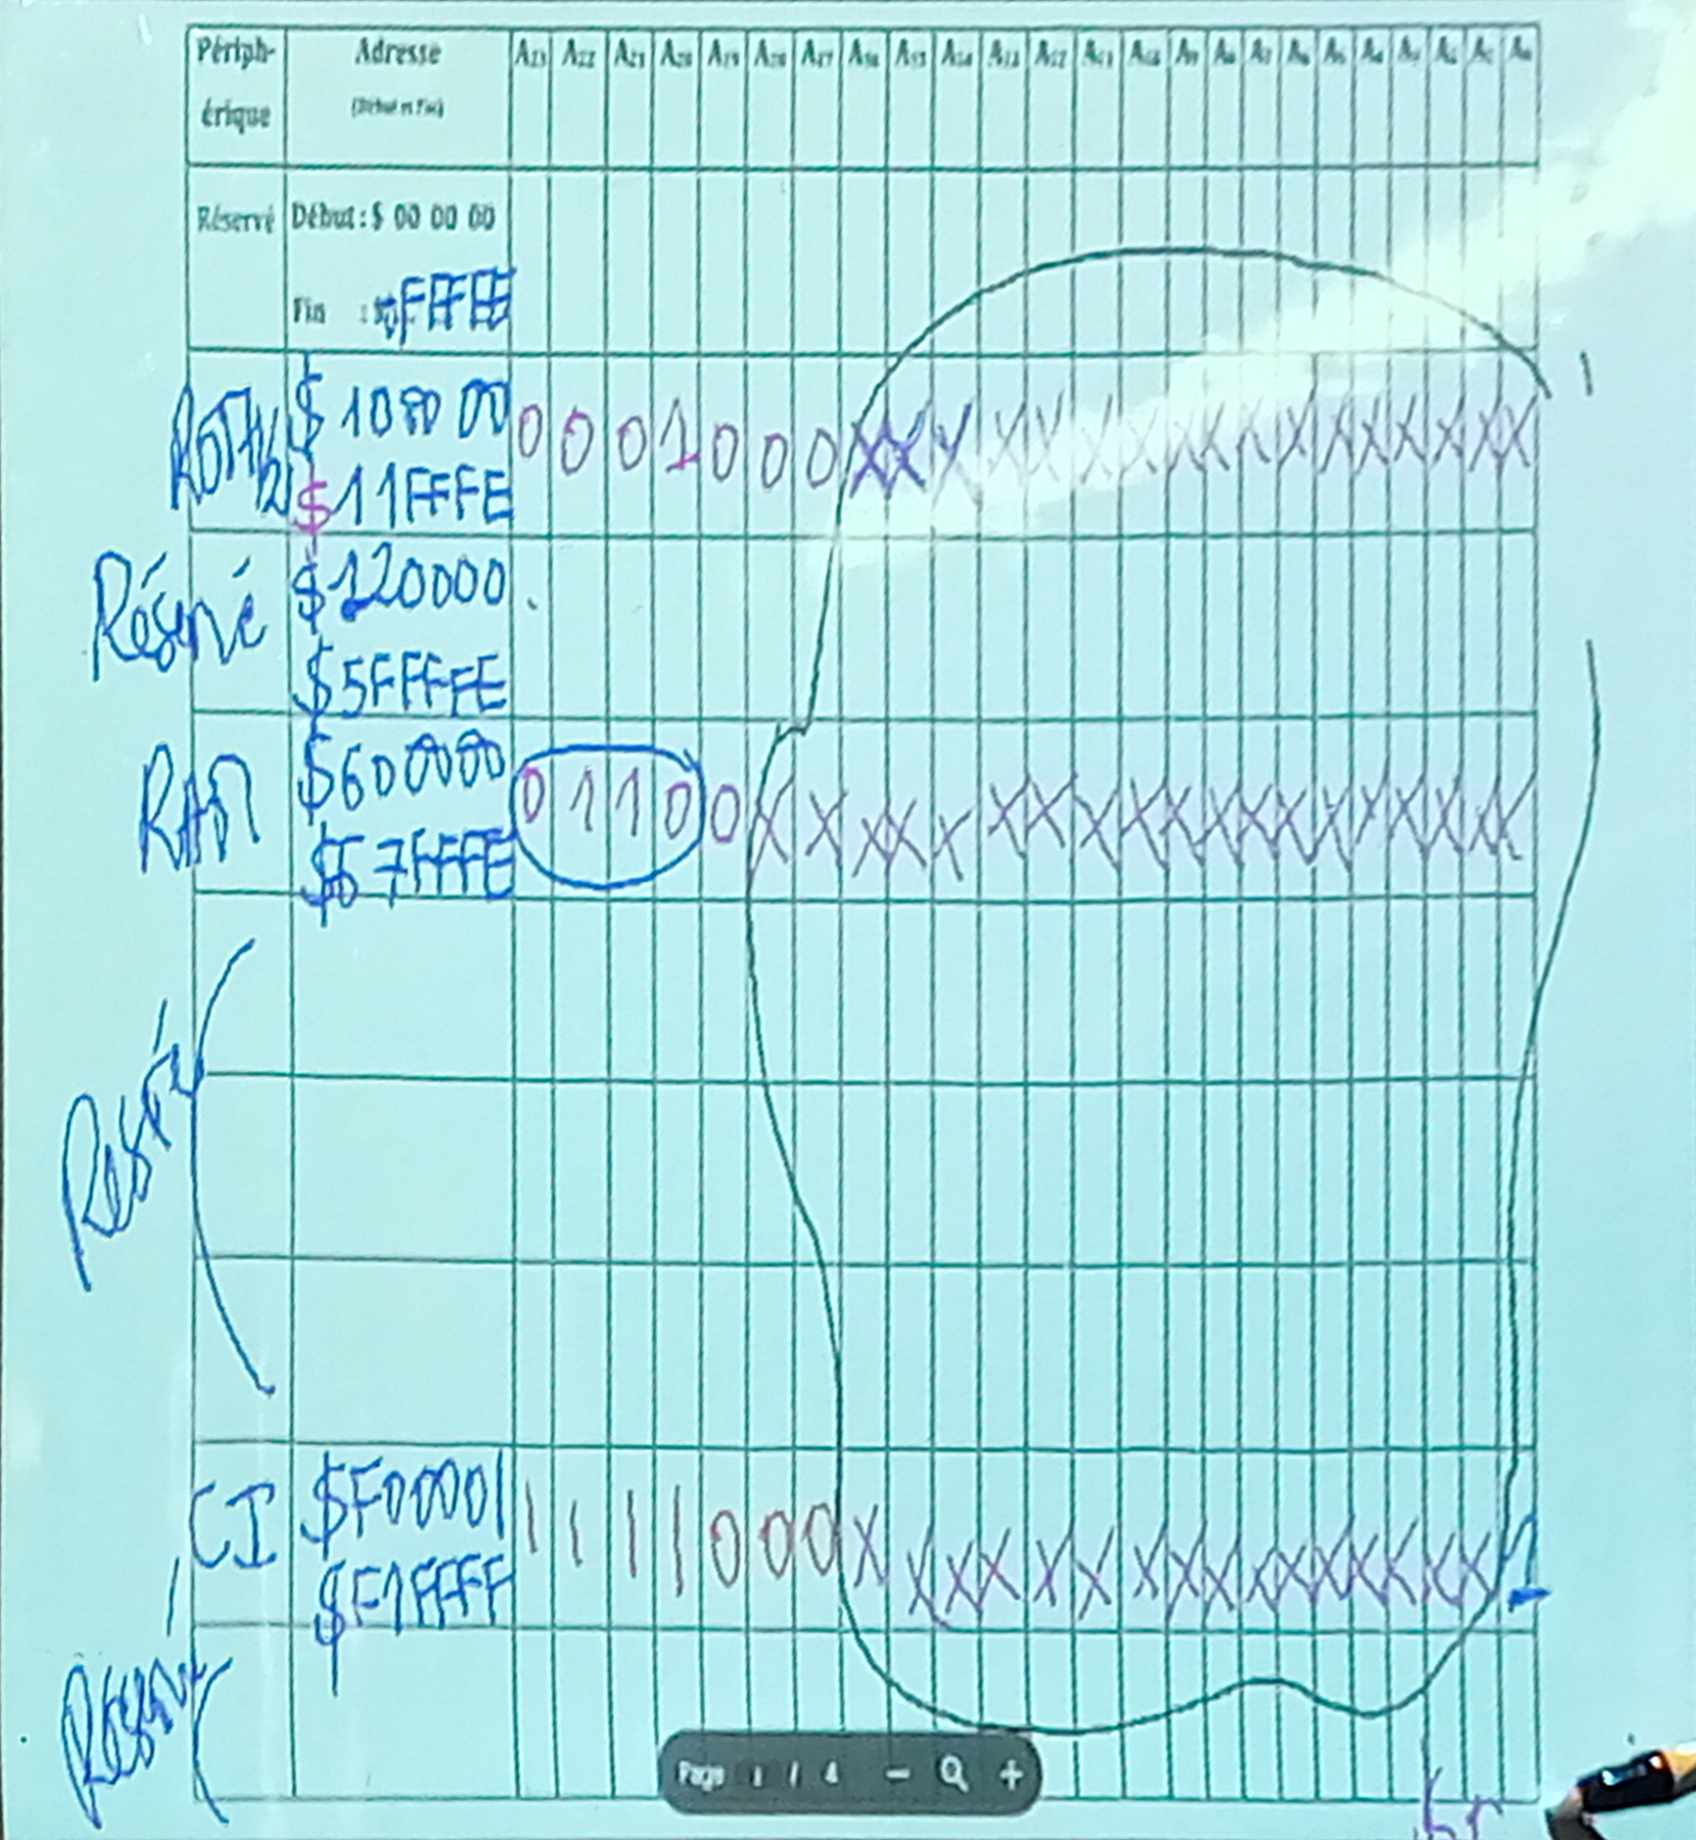 Périph-
érique
Adresse
(Début et Fin)
A23 A22 A21 A20 A19 A18 A17 A16 A15 A14 A13 A12 A11 A10 A9 A8 A7 A6 A5 A4 A3 A2 A1 A0
Réservé
Début : $ 00 00 00
Fin :
$ 1000 00
0 0 0 1 0 0 0 X X X X X X X X X X X X X X X X X
$11FFFE
Réservé
$120000
$5FFFFE
RAM
$600000
0 1 1 0 0 X X X X X X X X X X X X X X X X X X X
$67FFFE
CI
$F00001
1 1 1 1 0 0 0 X X X X X X X X X X X X X X X X 1
$F1FFFF
Réservé
Page 1 / 4 − +